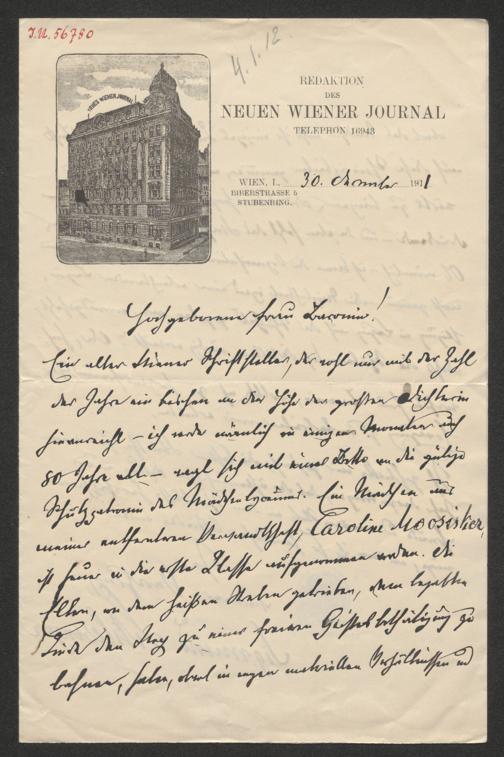 I.N. 56780
4.1.12.
NEUES WIENER JOURNAL
REDAKTION
DES
NEUEN WIENER JOURNAL
TELEPHON 16943
WIEN, I., 30. Dezember 1911
BIBERSTRASSE 5
STUBENRING.
Hochgeborene Frau Baronin!
Ein alter Wiener Schriftsteller, der wohl nur mit der Zahl
der Jahre ein bischen an der Höhe der großen Dichterin
hinanreicht – ich werde nämlich in einigen Monaten auch
80 Jahre alt – wagt sich mit einer Bitte an die gütige
Schutzpatronin des Mädchenlyceums. Ein Mädchen aus
meiner entfernten Verwandtschaft, Caroline
ist heuer in die erste Classe aufgenommen worden. Die
Eltern, von dem heißen Streben getrieben, dem begabten
Kinde den Weg zu einer freieren Geistesbethätigung zu
bahnen, haben, obwol in engen materiellen Verhältnissen und